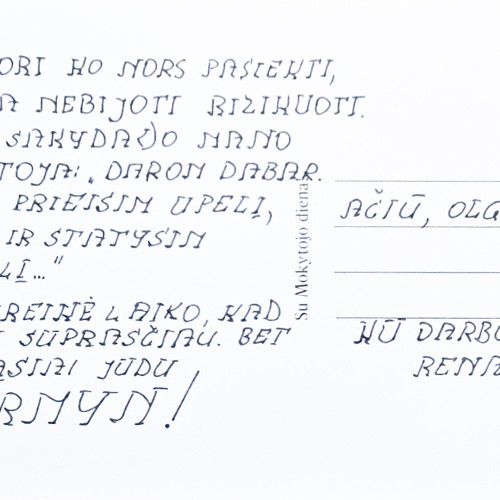 ORI KO NORS PASIEKTI,
A NEBIJOTI RIZIKUOTI.
SAKYDAVO MANO
TOJA: „DAROM DABAR.
PRIEISIM UPELĮ,
IR STATYSIM
LĮ..."
REIKĖ LAIKO, KAD
SUPRASČIAU. BET
ĄSIAI JUDU
RMYN!
Su Mokytojo diena
AČIŪ, OLG
KŪ DARBU
RENA